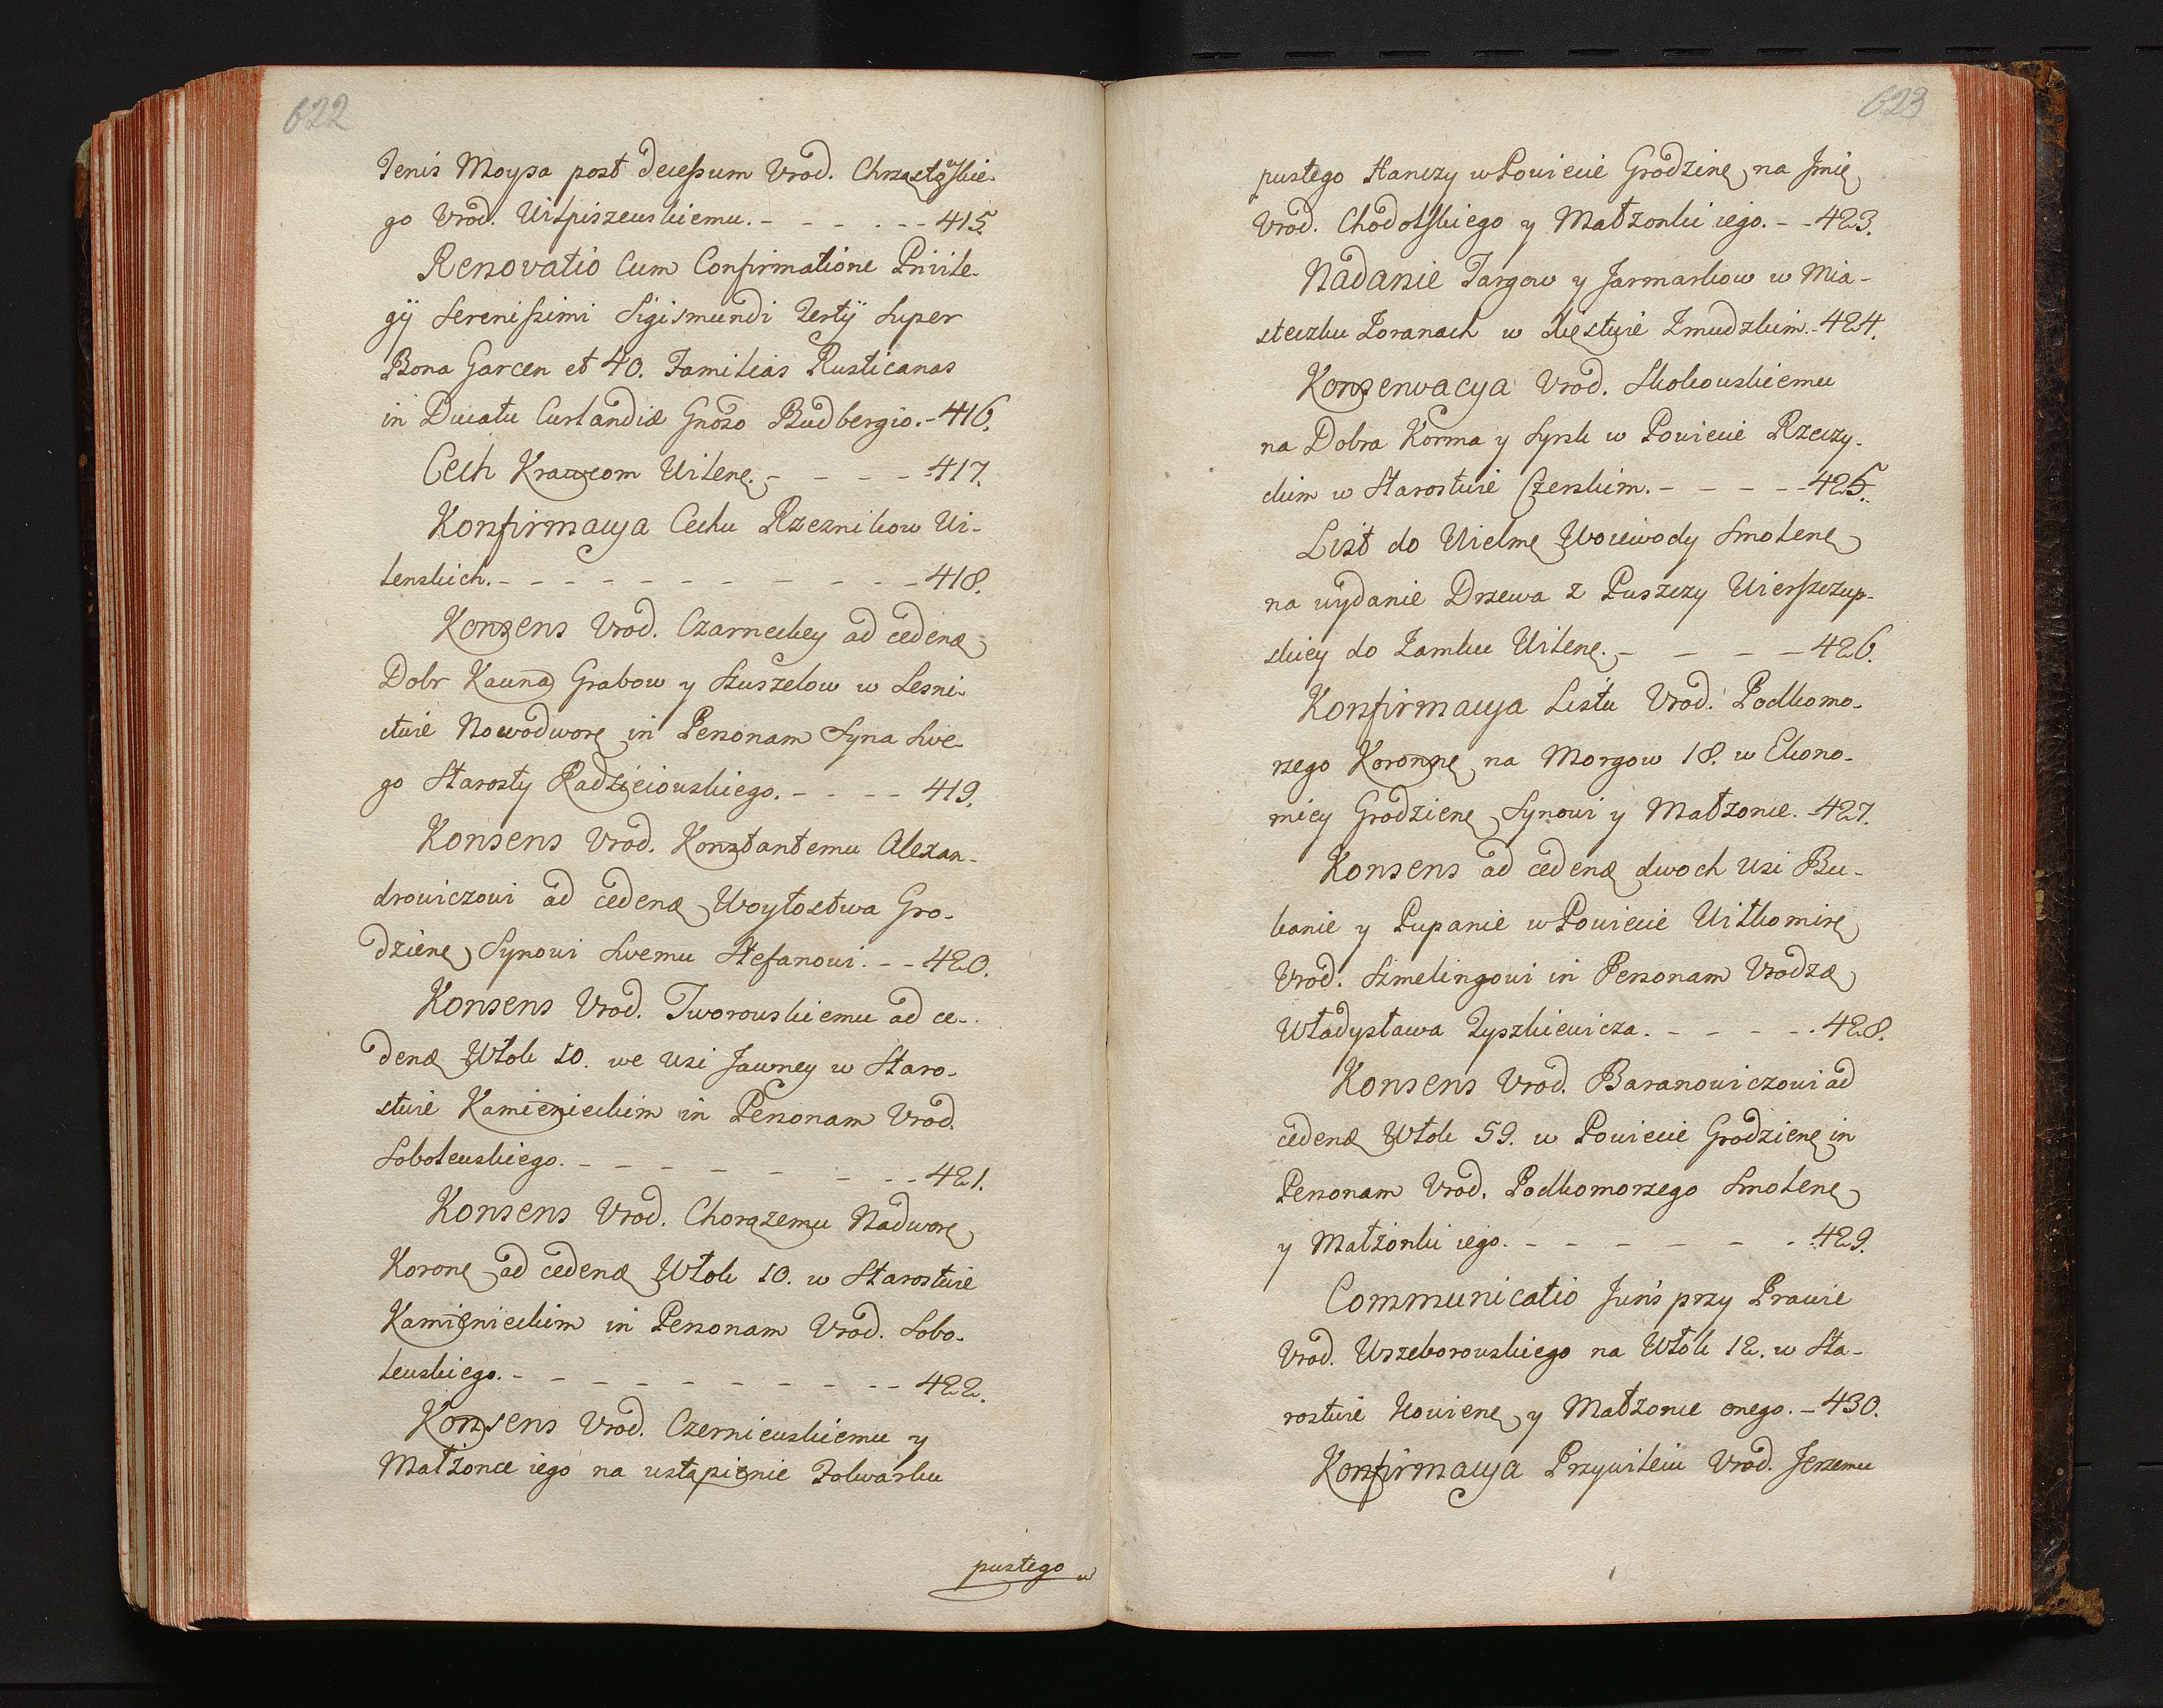 622
Jenis Moysa post decessum Vrod. Chrząstowskie-
go Vrod. Wilpiszewskiemu. - - - - - - 415.
Renovatio Cum Confirmatione Privile-
gÿ Serenissimi Sigismundi Tertÿ Super
Bona Garcen et 40. Familias Rusticanas
in Ducatu Curlandiæ Gnoso Budbergio. - 416.
Cech Krawcom Wilenę. - - - - 417.
Konfirmacya Cechu Rzeznikow Wi-
lenskich. - - - - - - - - - - - - 418.
Konsens Vrod. Czarneckey ad cedenæ
Dobr Kauna Grabow y Szuszelow w Lesni-
ctwie Nowodworę in Personam Syna Swe-
go Starosty Radzieiowskiego. - - - - 419.
Konsens Vrod. Konstantemu Alexan-
drowiczowi ad cedenæ Woytostwa Gro-
dzienę Synowi Swemu Stefanowi. - - 420.
Konsens Vrod. Tworowskiemu ad ce-
denæ Włok 10. we Wsi Jawney w Staro-
stwie Kamienieckim in Personam Vrod.
Sobolewskiego. - - - - - - - - - 421.
Konsens Vrod. Chorążemu Nadworę
Koronę ad cedenæ Włok 10. w Starostwie
Kamienieckim in Personam Vrod. Sobo-
lewskiego. - - - - - - - - - - - 422.
Konsens Vrod. Czerniewskiemu y
Małżonce iego na ustąpienie Folwarku
pustego
623
pustego Hanczy w Powiecie Grodzinę na Jmię
Vrod. Chodolskiego y Małżonki iego. - - 423.
Nadanie Targow y Jarmarkow w Mia-
steczku Zoranach w Xięstwie Zmudzkim. - 424.
Konserwacya Vrod. Skokowskiemu
na Dobra Korma y Syrsk w Powiecie Rzeczy-
ckim w Starostwie Czerskim. - - - - - 425.
List do Wielmę Woiewody Smolenę
na wydanie Drzewa z Puszczy Wierszczup-
skiey do Zamku Wilenę. - - - - - 426.
Konfirmacya Listu Vrod. Podkomo-
rzego Koronnę na Morgow 18. w Ekono-
miey Grodzienę Synowi y Małżonce. - 427.
Konsens ad cedenæ dwoch Wsi Bu-
kanie y Pupanie w Powiecie Wilkomirę
Vrod. Szmelingowi in Personam Vrodzæ
Władysława Tyszkiewicza. - - - - - 428.
Konsens Vrod. Baranowiczowi ad
cedenæ Włok 59. w Powiecie Grodzienę in
Personam Vrod. Podkomorzego Smolenę
y Małżonki iego. - - - - - - - 429.
Communicatio Juris przy Prawie
Vrod. Wszeborowskiego na Włok 12. w Sta-
rostwie Kowienę y Małżonce onego. - 430.
Konfirmacya Przywileiu Vrod. Jerzemu